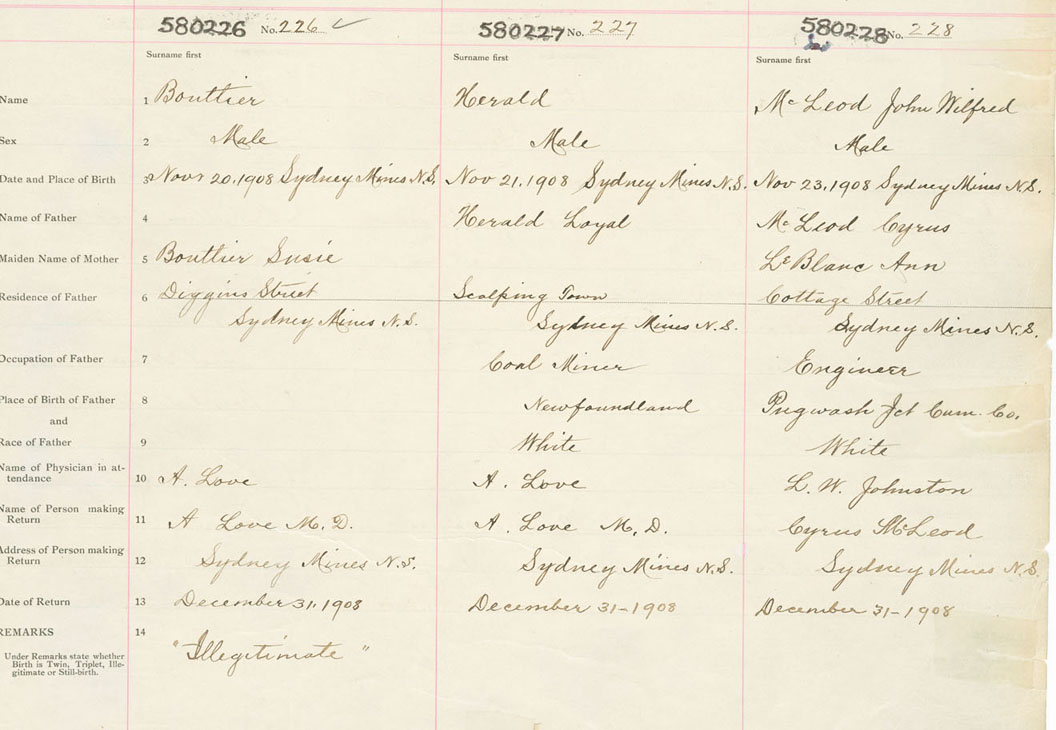 580226 No. 226 ✓ 580227 No. 227 580228 No. 228
Surname first Surname first Surname first
Name 1 Bouttier Herald McLeod John Wilfred
Sex 2 Male Male Male
Date and Place of Birth 3 Novr 20, 1908 Sydney Mines N.S. Nov 21, 1908 Sydney Mines N.S. Nov 23, 1908 Sydney Mines N.S.
Name of Father 4 Herald Loyal McLeod Cyrus
Maiden Name of Mother 5 Bouttier Susie LeBlanc Ann
Residence of Father 6 Diggins Street Scalping Town Cottage Street
Sydney Mines N.S. Sydney Mines N.S. Sydney Mines N.S.
Occupation of Father 7 Coal Miner Engineer
Place of Birth of Father 8 Newfoundland Pugwash Jct Cum. Co.
and
Race of Father 9 White White
Name of Physician in at-
tendance 10 A. Love A. Love L. W. Johnston
Name of Person making
Return 11 A Love M.D. A. Love M.D. Cyrus McLeod
Address of Person making
Return 12 Sydney Mines N.S. Sydney Mines N.S. Sydney Mines N.S.
Date of Return 13 December 31, 1908 December 31-1908 December 31-1908
REMARKS 14
Under Remarks state whether
Birth is Twin, Triplet, Ille-
gitimate or Still-birth.
"Illegitimate"